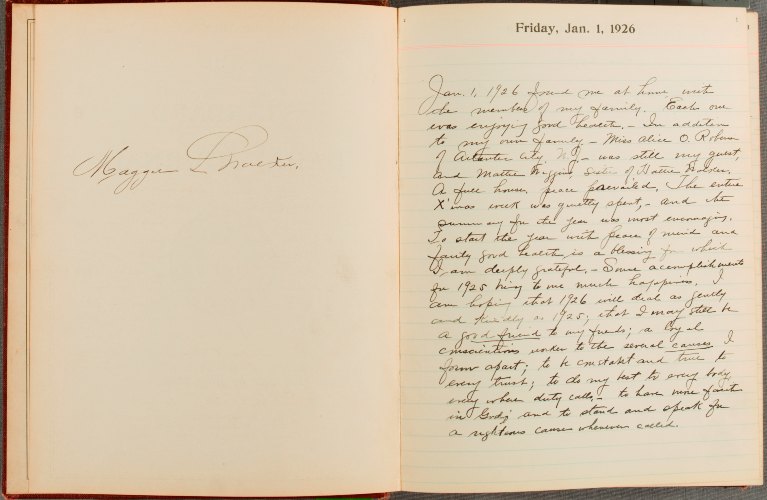 Maggie L Walker,
Friday, Jan. 1, 1926
Jan. 1, 1926 found me at home with
the members of my family. Each one
was enjoying good health. - In addition
to my own family - Miss Alice O. Robinson
of Atlantic City, N.J. - was still my guest,
and Mattie Wiggins, Sister of Hattie Walker.
A full house, peace prevailed, The entire
X'mas week was quietly spent, - and the
summary for the year was most encouraging.
To start the year with peace of mind and
fairly good health is a blessing for which
I am deeply grateful. - Some accomplishments
for 1925 bring to me much happiness. I
am hoping that 1926 will deal as gently
and kindly as 1925; that I may still be
a good friend to my friends; a loyal
conscientious worker to the several causes I
form apart; to be constant and true to
every trust; to do my best to every body,
every where duty calls, - to have more faith
in God; and to stand and speak for
a righteous cause whenever called.